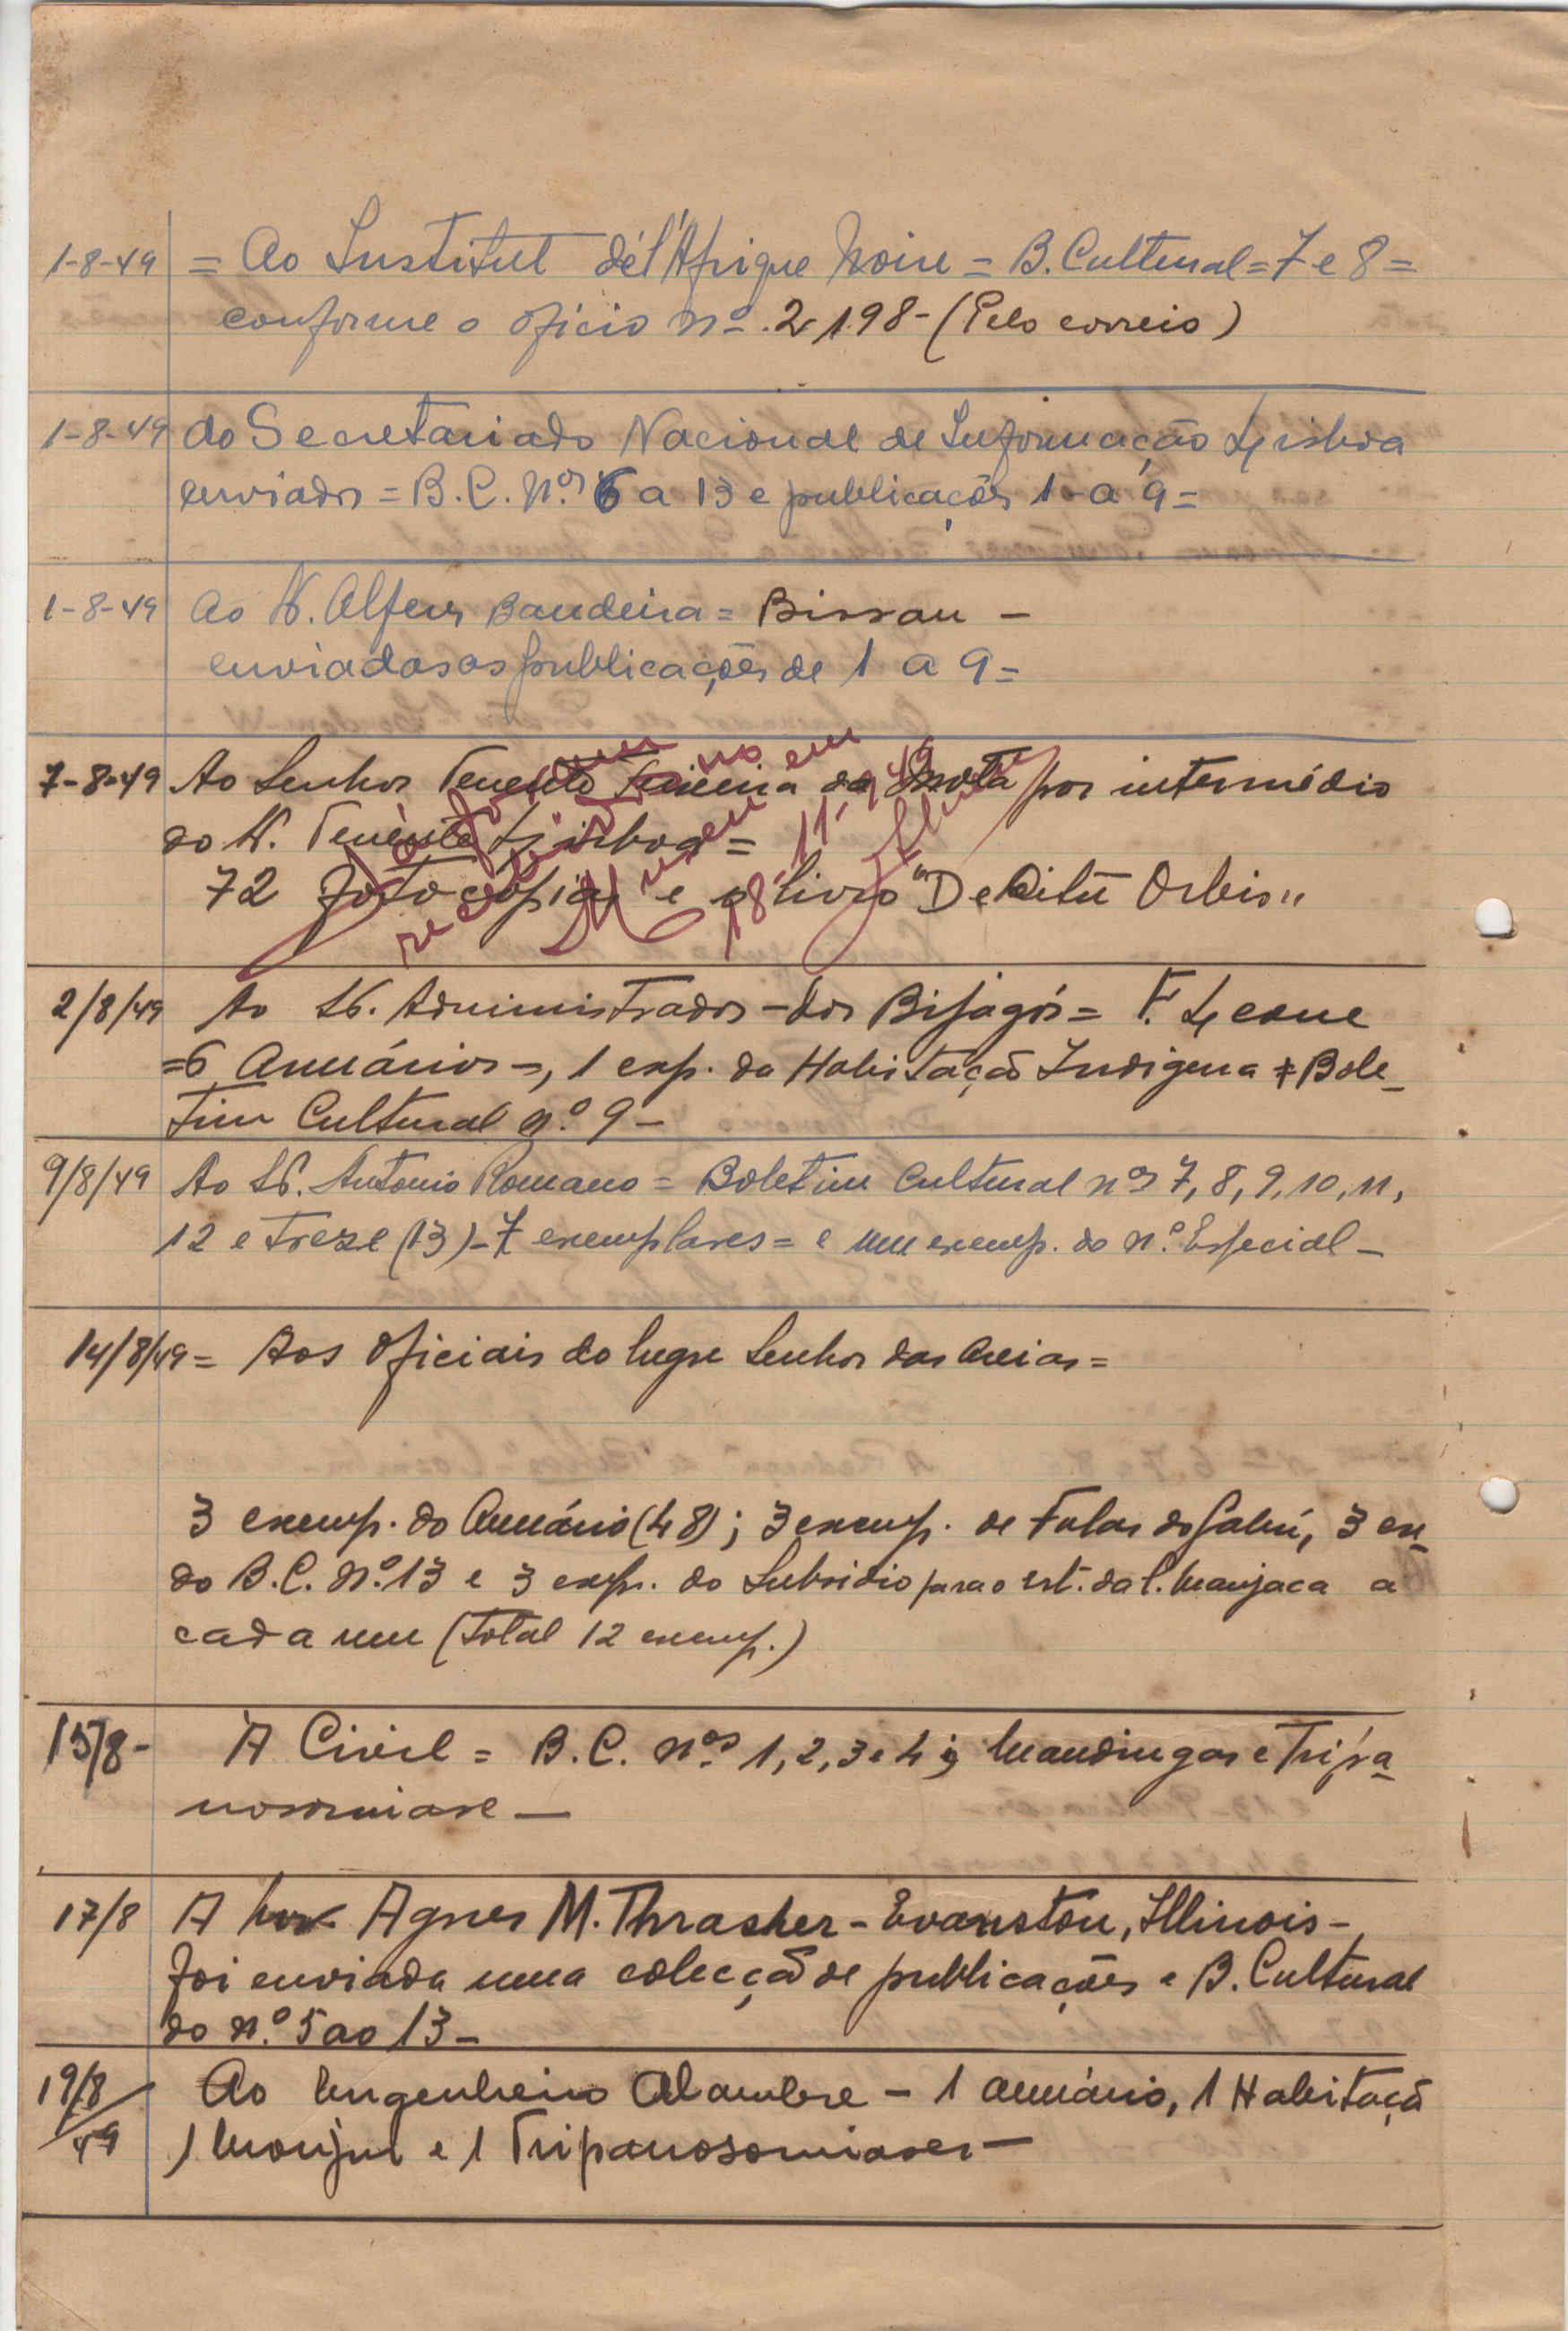 1-8-49 = Ao Institut dél'Afrique Noire = B. Cultural = 7 e 8 =
conforme o ofício nº 2198 - (Pelo correio)
1-8-49 Ao Secretariado Nacional de Informação Lisboa
enviados = B. C. Nos 6 a 13 e publicações 1 - a 9 =
1-8-49 Ao Sr. Alferes Bandeira = Bissau -
enviadas as publicações de 1 a 9 =
7-8-49 Ao Senhor Tenente Teixeira da Mota por intermédio
do Sr. Tenente Lisboa =
72 fotocópias e o livro "De Situ Orbis"
Já foram
recebidas no
Museu em
18-11-949
2/8/49 Ao Sr. Administrador - dos Bijagós = F. Leone
= 6 Anuários =, 1 exp. da Habitação Indígena + Bole-
tim Cultural nº 9 -
9/8/49 Ao Sr. Antonio Romano = Boletim Cultural nos 7, 8, 9, 10, 11,
12 e treze (13) - 7 exemplares = e um exemp. do nº Especial -
14/8/49 = Aos Oficiais do lugre Senhor das Areias =
3 exemp. do Anuário (48); 3 exemp. de Fulas do Gabú, 3 ex-
do B. C. nº 13 e 3 exp. do Subsidio para o est. da C. Manjaca a
cada um (Total 12 exemp.)
15/8 - À Civil = B. C. nos 1, 2, 3 e 4; Mandingas e Tripa-
nosomiase -
17/8 A Agnes M. Thrasher - Evanston, Illinois -
foi enviada uma colecção de publicações e B. Cultural
do nº 5 ao 13 -
19/8/49 Ao Engenheiro Alambre - 1 anuário, 1 Habitaçã
1 e 1 Tripanosomiases -